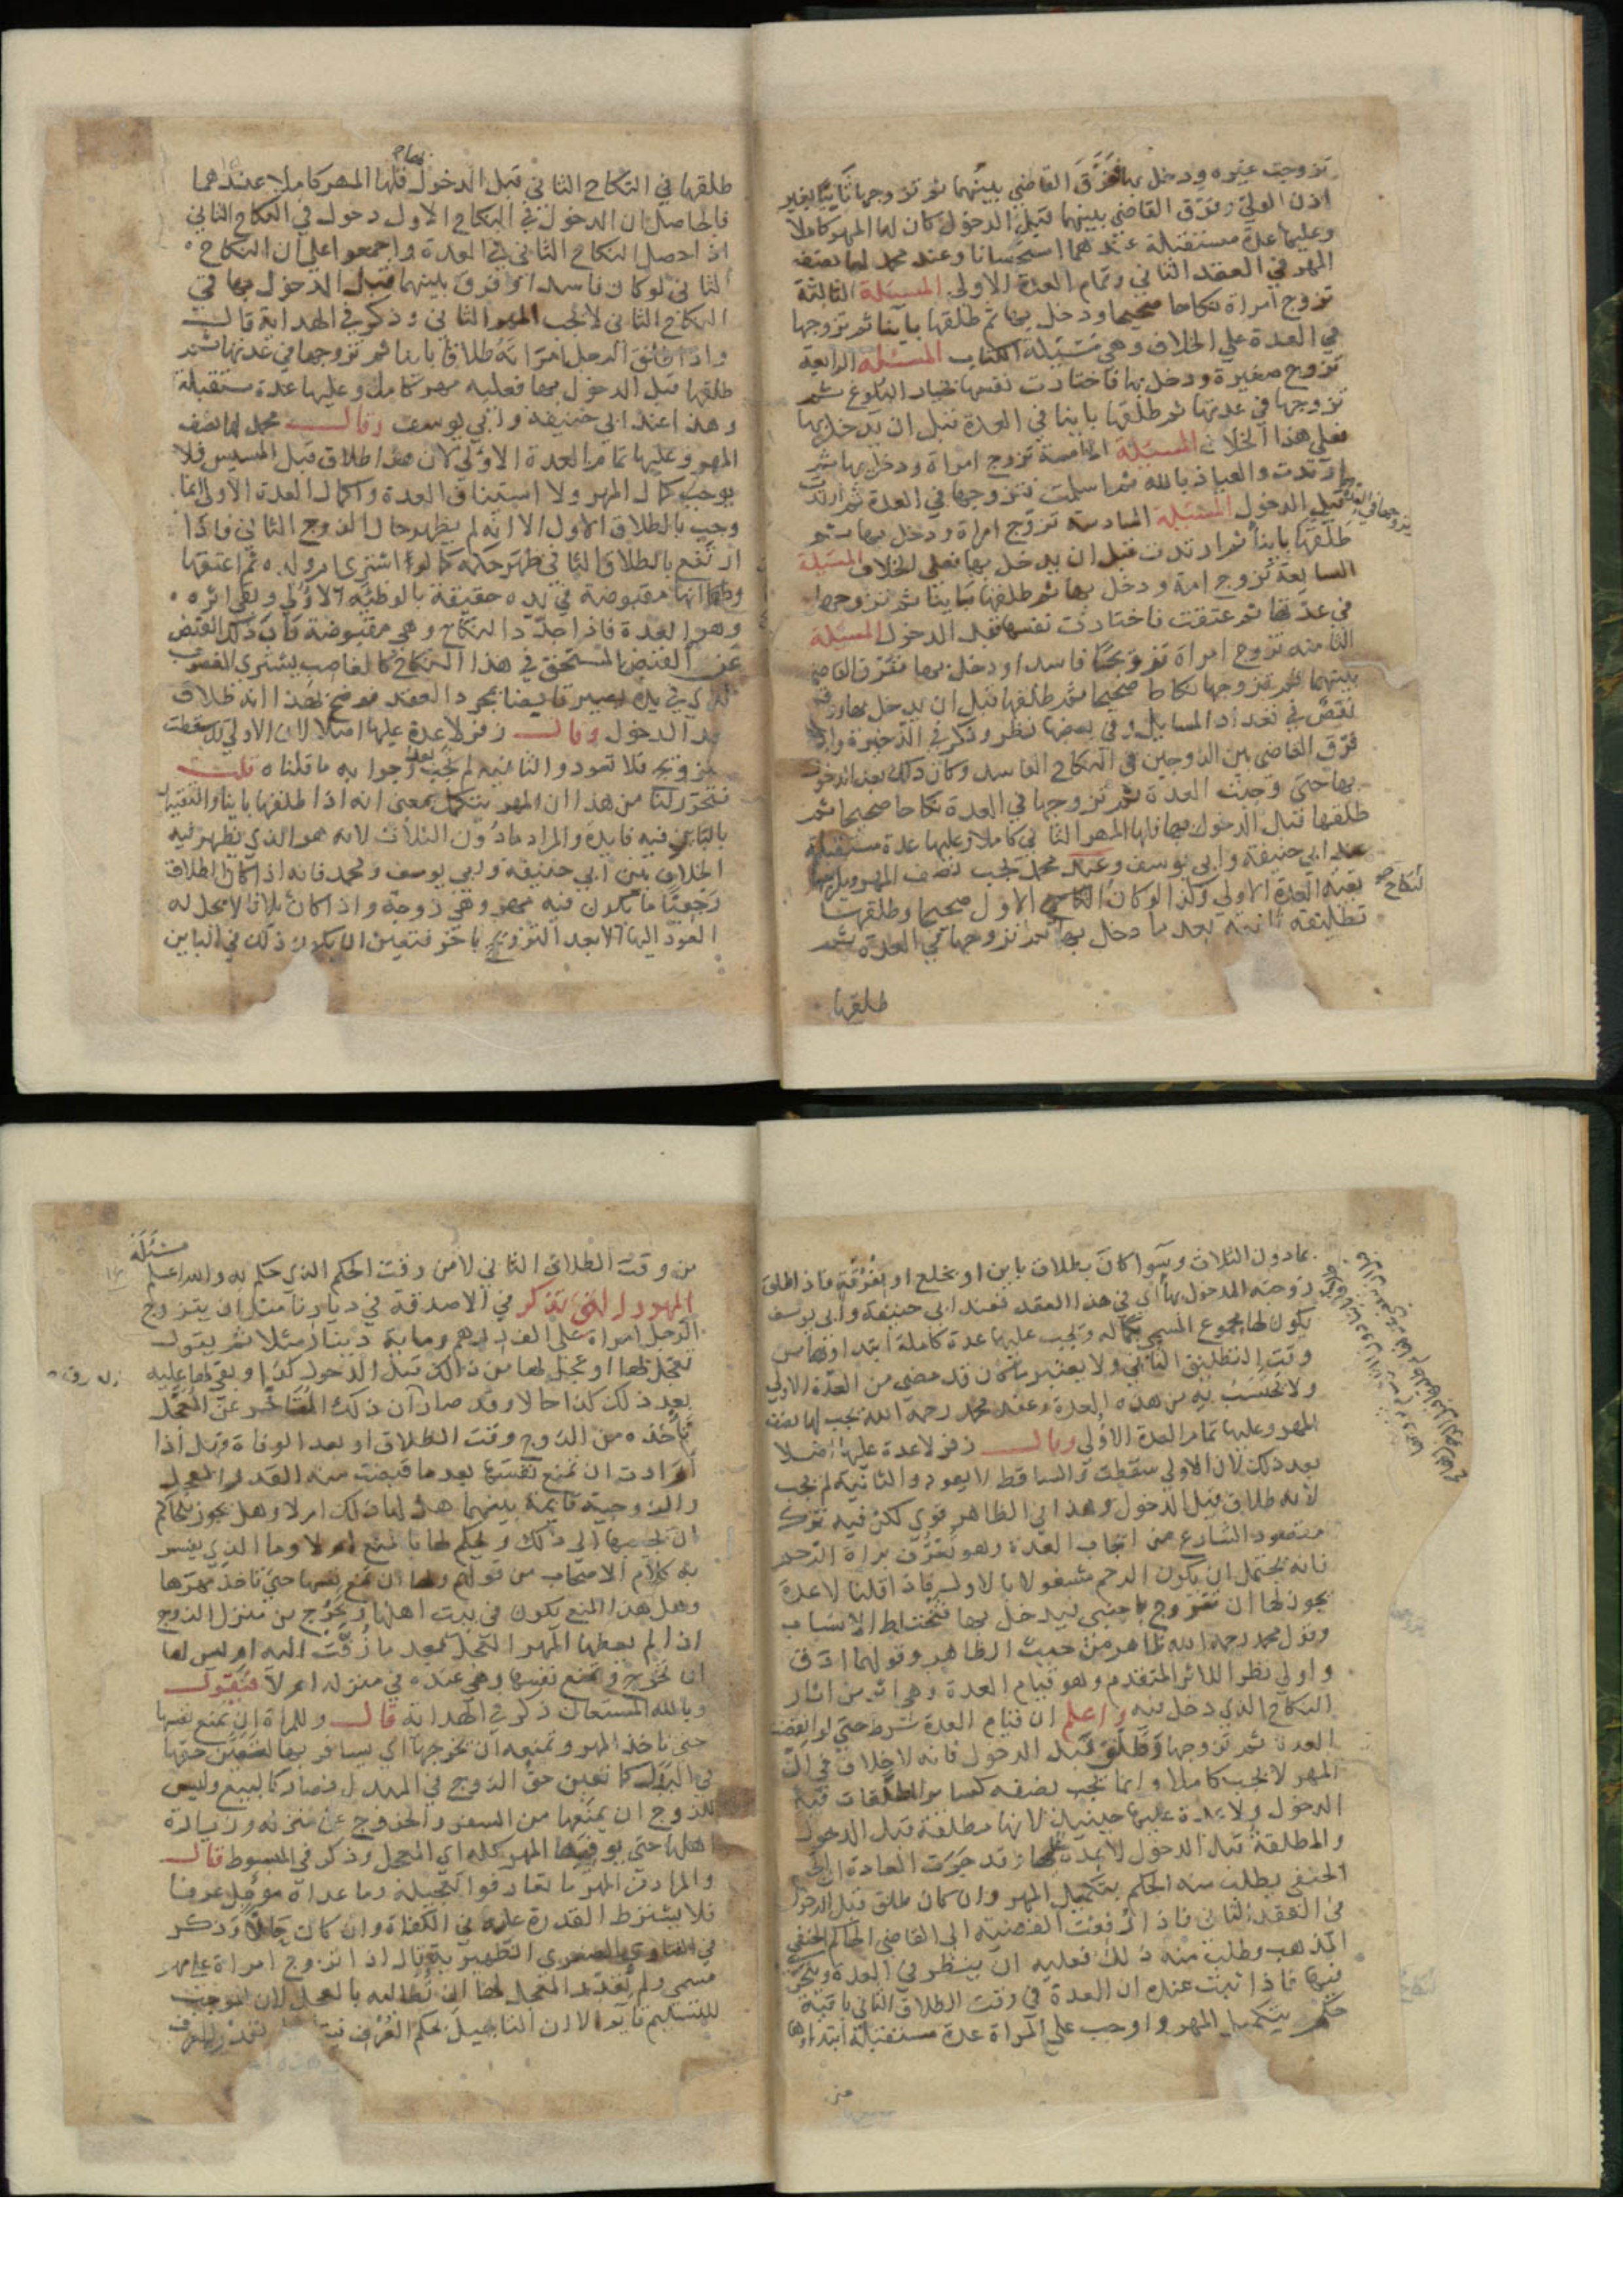 تزوجت غيره ودخل بها ففرق القاضي بينهما ثم تزوجها ثانيا بغير
اذن الولي وفرق القاضي بينهما قبل الدخول كان لها المهر كاملا
وعليها عدة مستقبلة عندهما استحسانا وعند محمد لها نصف
المهر في العقد الثاني وتمام العدة الاولى المسئلة الثالثة
تزوج امراة نكاحا صحيحا ودخل بها ثم طلقها باينا ثم تزوجها
في العدة على الخلاف وهي مسئلة الكتاب المسئلة الرابعة
تزوج صغيرة ودخل بها فاختارت نفسها بخيار البلوغ ثم
تزوجها في عدتها ثم طلقها باينا في العدة قبل ان يدخل بها
فعلى هذا الخلاف المسئلة الخامسة تزوج امراة ودخل بها ثم
ارتدت والعياذ بالله ثم اسلمت فتزوجها في العدة ثم ارتدت
قبل الدخول المسئلة السادسة تزوج امراة ودخل بها ثم
طلقها باينا ثم ارتدت قبل ان يدخل بها فعلى الخلاف المسئلة
السابعة تزوج امة ودخل بها ثم طلقها باينا ثم تزوجها
في عدتها ثم عتقت فاختارت نفسها قبل الدخول المسئلة
الثامنة تزوج امراة تزوجا فاسدا ودخل بها ففرق القاضي
بينهما ثم تزوجها نكاحا صحيحا ثم طلقها قبل ان يدخل بها
نقص في تعداد المسايل وفي بعضها نظر وذكر في الذخيرة واذا
فرق القاضي بين الزوجين في النكاح الفاسد وكان ذلك بعد الدخول
بها حتى وجبت العدة ثم تزوجها في العدة نكاحا صحيحا ثم
طلقها قبل الدخول بها فلها المهر الثاني كاملا وعليها عدة مستقبلة
عند ابي حنيفة وابي يوسف وعند محمد يجب نصف المهر
بقية العدة الاولى وكذا لو كان النكاح الاول صحيحا وطلقها
تطليقة ثانية بعد ما دخل بها ثم تزوجها في العدة ثم
طلقها
طلقها في النكاح الثاني قبل الدخول فلها المهر كاملا عندهما
فالحاصل ان الدخول في النكاح الاول دخول في النكاح الثاني
اذا حصل النكاح الثاني في العدة واجمعوا على ان النكاح
الثاني لو كان فاسدا وفرق بينهما قبل الدخول بها في
النكاح الثاني لا يجب المهر الثاني وذكر في الهداية قال
واذا طلق الرجل امراته طلاقا باينا ثم تزوجها في عدتها ثم
طلقها قبل الدخول بها فعليه مهر كامل وعليها عدة مستقبلة
وهذا عند ابي حنيفة وابي يوسف وقال محمد لها نصف
المهر وعليها تمام العدة الاولى لان هذا طلاق قبل المسيس فلا
يوجب كمال المهر ولا استيناف العدة واكمال العدة الاولى انما
وجب بالطلاق الاول الا انه لم يظهر حال الزوج الثاني فاذا
ارتفع بالطلاق الثاني ظهر حكمه كما لو اشترى ام ولده ثم اعتقها
ولهما انها مقبوضة في يده حقيقة بالوطئة الاولى وبقي اثره
وهو العدة فاذا جدد النكاح وهي مقبوضة ناب ذلك القبض
عن القبض المستحق في هذا النكاح كالغاصب يشتري المغصوب
الذي في يده يصير قابضا بمجرد العقد فوضح بهذا انه طلاق
بعد الدخول وقال زفر لا عدة عليها اصلا لان الاولى قد سقطت
بالتزوج فلا تعود والثانية لم تجب وجوابه ما قلناه قلت
فتحرر لنا من هذا ان المهر يتكمل بمعنى انه اذا طلقها باينا والتقييد
بالباين فيه فايدة والمراد مادون الثلاث لانه هو الذي يظهر فيه
الخلاف بين ابي حنيفة وابي يوسف ومحمد فانه اذا كان الطلاق
رجعيا ما يكون فيه مهر وهي زوجة واذا كان ثلاثا لا محل له
العود اليها الا بعد التزويج باخر فتعين ان يكون ذلك في الباين
بمادون الثلاث وسوا كان بطلاق باين او بخلع او بفرقة فاذا طلق
زوجته المدخول بها اي في هذا العقد فعند ابي حنيفة وابي يوسف
يكون لها مجموع المسمى بكماله وتجب عليها عدة كاملة ابتداوها من
وقت التطليق الثاني ولا يعتبر ما كان قد مضى من العدة الاولى
ولا يحتسب به من هذه العدة وعند محمد رحمه الله يجب لها نصف
المهر وعليها تمام العدة الاولى وقال زفر لا عدة عليها اصلا
بعد ذلك لان الاولى سقطت والساقط لا يعود والثانية لم تجب
لانه طلاق قبل الدخول وهذا في الظاهر قوي لكن فيه ترك
مقصود الشارع من ايجاب العدة وهو تعرف براة الرحم
فانه يحتمل ان يكون الرحم مشغولا بالاول فاذا قلنا لا عدة
يجوز لها ان تتزوج باجنبي فيدخل بها فتختلط الانساب
وقول محمد رحمه الله ظاهر من حيث الظاهر وقولهما ادق
واولى نظرا للاثر المتقدم وهو قيام العدة وهي اثر من اثار
النكاح الذي دخل فيه واعلم ان قيام العدة شرط حتى لو انقضت
العدة ثم تزوجها وطلق قبل الدخول فانه لا خلاف في ان
المهر لا يجب كاملا وانما يجب نصفه كساير المطلقات قبل
الدخول ولا عدة عليها حينيذ لانها مطلقة قبل الدخول
والمطلقة قبل الدخول لا عدة عليها وقد جرت العادة ان
الحنفي يطلب منه الحكم بتكميل المهر وان كان طلق قبل الدخول
في العقد الثاني فاذا رفعت القضية الى القاضي الحاكم الحنفي
المذهب وطلب منه ذلك فعليه ان ينظر في العدة
فيها فاذا ثبت عنده ان العدة في وقت الطلاق الثاني باقية
حكم بتكميل المهر واوجب على المراة عدة مستقبلة ابتداوها
من
مسئلة
من وقت الطلاق الثاني لا من وقت الحكم الذي حكم به والله اعلم
المهور التي تذكر في الاصدقة في ديارنا مثل ان يتزوج
الرجل امراة على الف درهم وماية دينار مثلا ثم يقول
تعجل لها او عجل لها من ذلك قبل الدخول كذا وبقي لها عليه
بعد ذلك كذا حالا وقد صار ان ذلك المتاخر عن المعجل
تاخذه من الزوج وقت الطلاق او بعد الوفاة فهل اذا
ارادت ان تمنع نفسها بعد ما قبضت منه القدر المعجل
والزوجية قايمة بينهما هل لها ذلك ام لا وهل يجوز للحاكم
ان يجيبها الى ذلك ويحكم لها بالمنع ام لا وما الذي يفسر
به كلام الاصحاب من قولهم ولها ان تمنع نفسها حتى تاخذ مهرها
وهل هذا المنع يكون في بيت اهلها او تخرج من منزل الزوج
اذا لم يعطها المهر المعجل بعد ما زفت اليه او ليس لها
ان تخرج وتمنع نفسها وهي عنده في منزله ام لا فنقول
وبالله المستعان ذكر في الهداية قال وللمراة ان تمنع نفسها
حتى تاخذ المهر وتمنعه ان يخرجها اي يسافر بها ليتعين حقها
في البدل كما تعين حق الزوج في المبدل فصار كالبيع وليس
للزوج ان يمنعها من السفر والخروج من منزله وزيارة
اهلها حتى يوفيها المهر كله اي المعجل وذكر في المبسوط قال
والمراد من المهر ما تعارفوا تعجيله وما عداه موجل عرفا
فلا يشترط القدرة عليه في الكفاة وان كان حالا وذكر
في الفتاوى الصغرى الظهيرية قال اذا تزوج امراة على مهر
مسمى ولم يقدر المعجل لها ان تطالبه بالمعجل لان الموجب